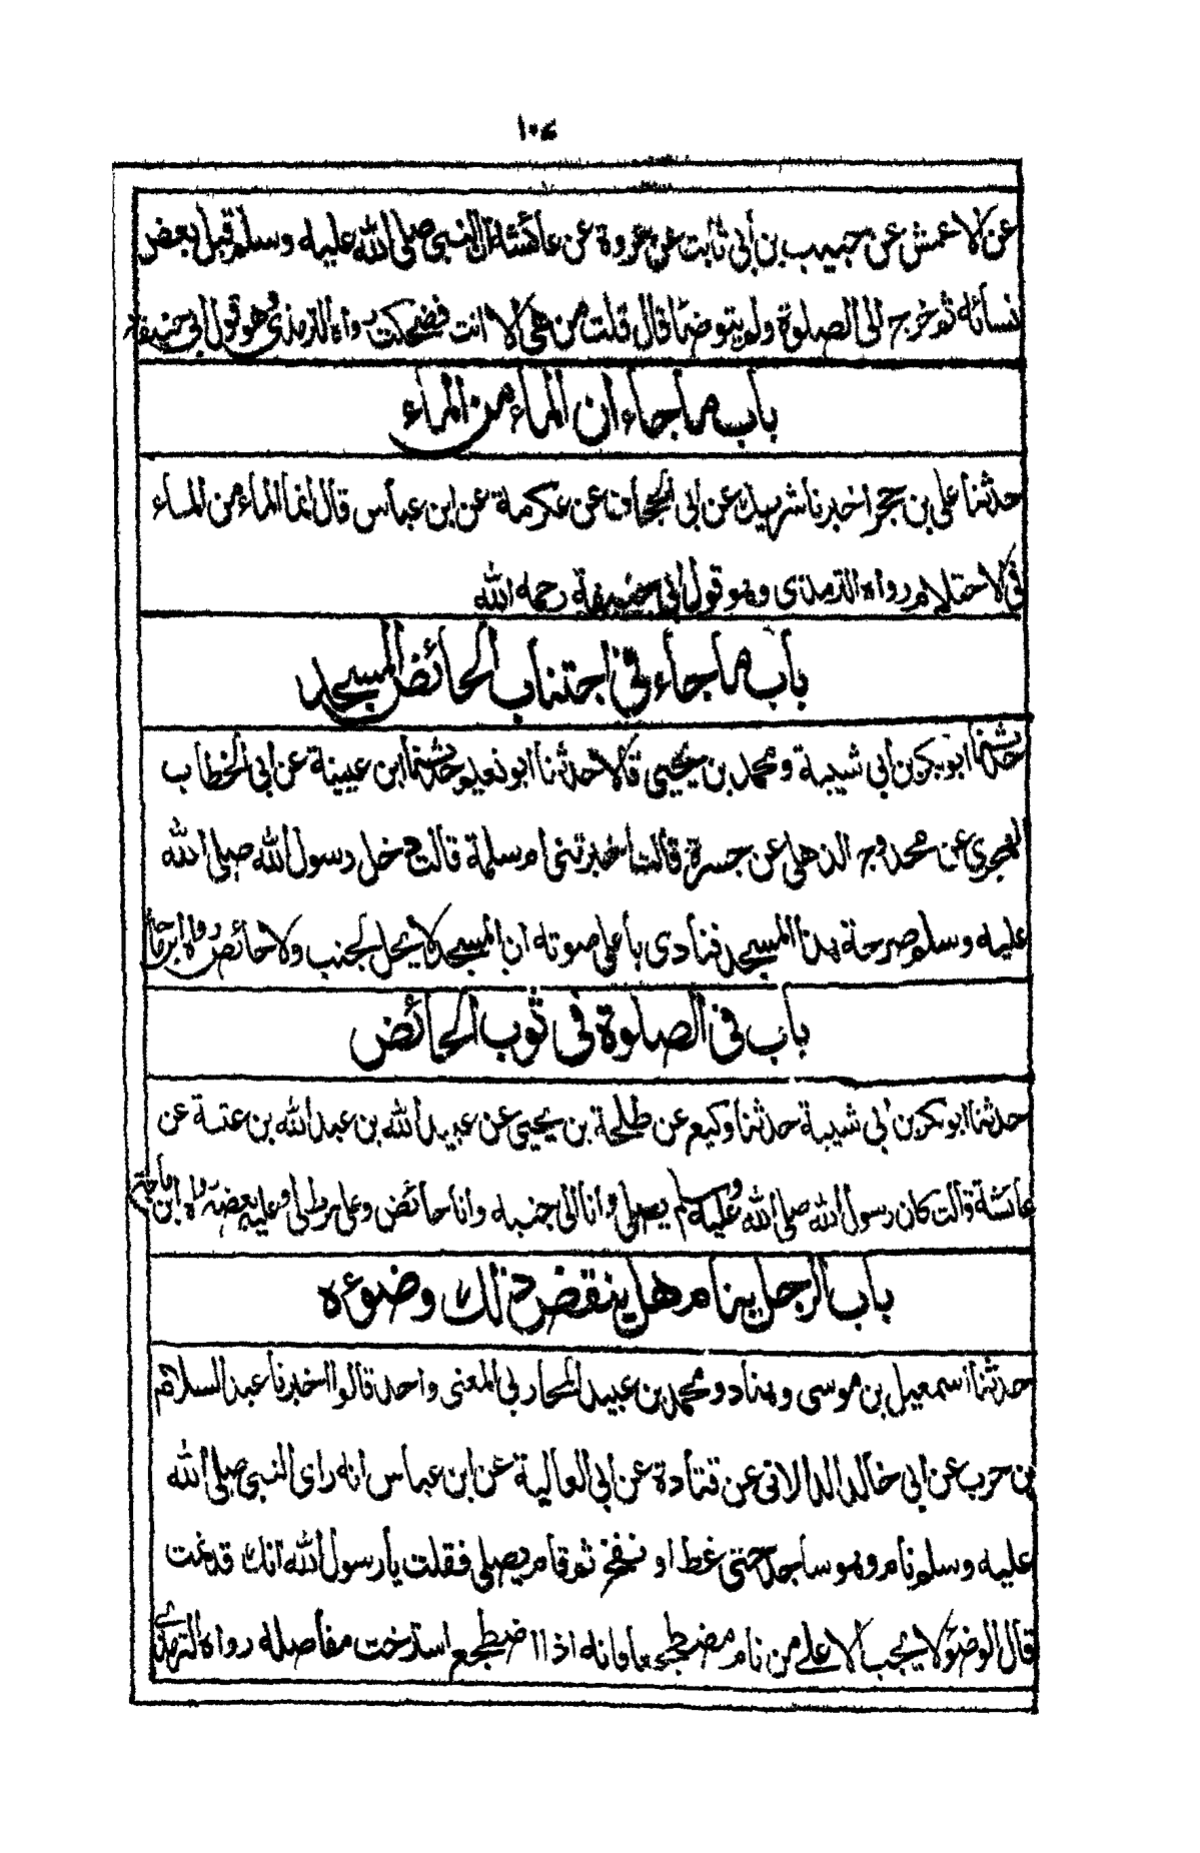 ١٠٤
عن الاعمش عن حبيب بن أبي ثابت عن عروة عن عائشة ان النبي صلى الله عليه وسلم قبل بعض
نسائه ثم خرج الى الصلوة ولم يتوضأ قال قلت من هي الا انت فضحكت رواه الترمذي وهو قول ابي حنيفة
باب ما جاء ان الماء من الماء
حدثنا علي بن حجر اخبرنا شريك عن ابي الجحاف عن عكرمة عن ابن عباس قال انما الماء من الماء
في الاحتلام رواه الترمذي وهو قول ابي حنيفة رحمه الله
باب ما جاء في اجتناب الحائض المسجد
حدثنا ابو بكر بن ابي شيبة ومحمد بن يحيى قالا حدثنا ابو نعيم حدثنا ابن عيينة عن ابي الخطاب
الهجري عن محدوج الذهلي عن جسرة قالت اخبرتني ام سلمة قالت دخل رسول الله صلى الله
عليه وسلم صرحة هذا المسجد فنادى بأعلى صوته ان المسجد لا يحل لجنب ولا حائض رواه ابن ماجة
باب في الصلوة في ثوب الحائض
حدثنا ابو بكر بن ابي شيبة حدثنا وكيع عن طلحة بن يحيى عن عبيد الله بن عبد الله بن عتبة عن
عائشة قالت كان رسول الله صلى الله عليه وسلم يصلي وانا الى جنبه وانا حائض وعلي مرط لي وعليه بعضه رواه ابن ماجة
باب الرجل ينام هل ينقض ذلك وضوءه
حدثنا اسمعيل بن موسى وهناد ومحمد بن عبيد المحاربي المعنى واحد قالوا اخبرنا عبد السلام
بن حرب عن ابي خالد الدالاني عن قتادة عن ابي العالية عن ابن عباس انه راى النبي صلى الله
عليه وسلم نام وهو ساجد حتى غط او نفخ ثم قام يصلي فقلت يا رسول الله انك قد نمت
قال الوضوء لا يجب الا على من نام مضطجعا فانه اذا اضطجع استرخت مفاصله رواه الترمذي